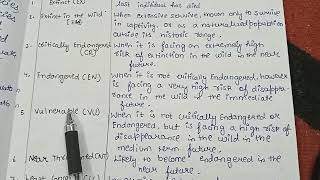 1. Extinct (EX) last individual has died
2. Extinct in the wild (EW) When extensive survive, known only to survive
in captivity, or as a naturalised population
outside its historic range.
3. Critically Endangered (CR) When it is facing an extremely high
risk of extinction in the wild in the near
future.
4. Endangered (EN) When it is not critically Endangered, however
is facing a very high risk of disappea-
rance in the wild in the immediate
future.
5 Vulnerable (VU) When it is not critically Endangered or
Endangered, but is facing a high risk of
disappearance in the wild in the
medium term future.
6 Near (NT) Likely to become endangered in the
near future.